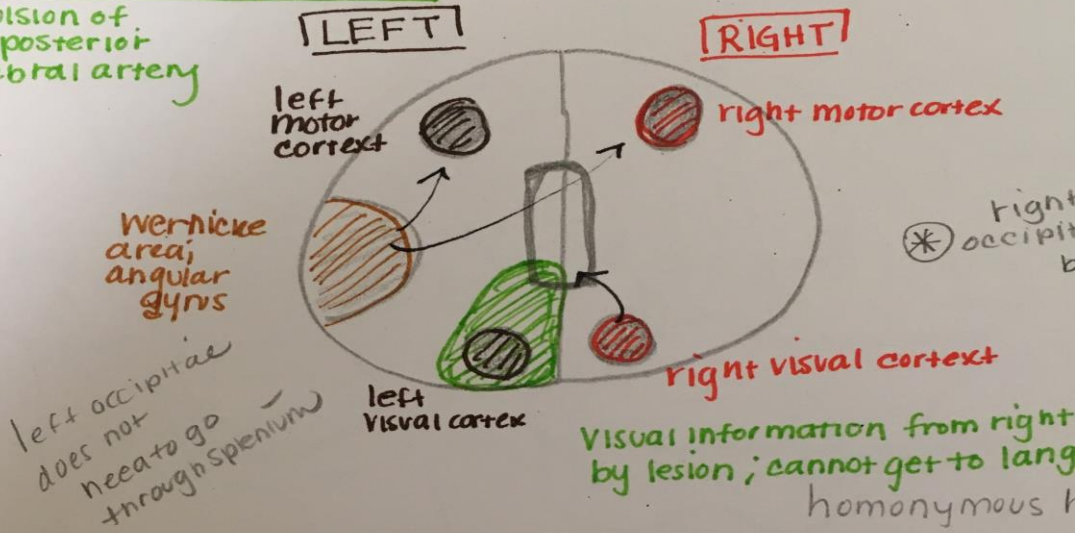 posterior
artery
LEFT
RIGHT
left
motor
cortext
right motor cortex
wernicke
area;
angular
gyrus
right
* occipit
left occipitae
does not
neea to go
through splenium
left
visual cortex
right visual cortext
Visual information from right
by lesion; cannot get to lang
homonymous h